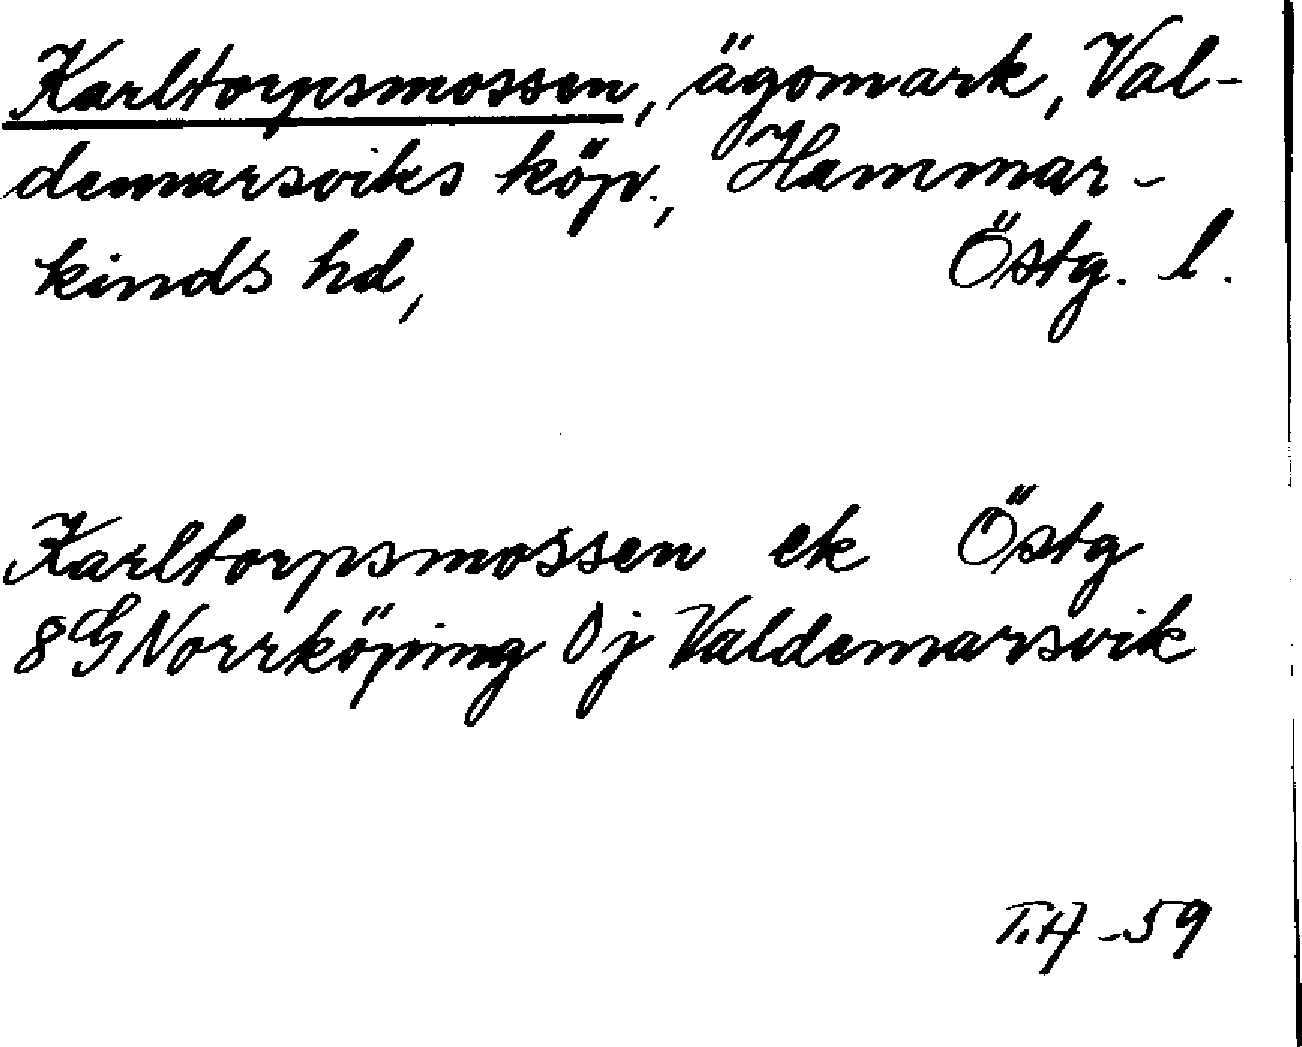 Karltorpsmossen, ägomark, Val-
demarsviks köp., Hammar-
kinds hd, Östg. l.
Karltorpsmossen ek Östg
8G Norrköping 0j Valdemarsvik
T.A -59